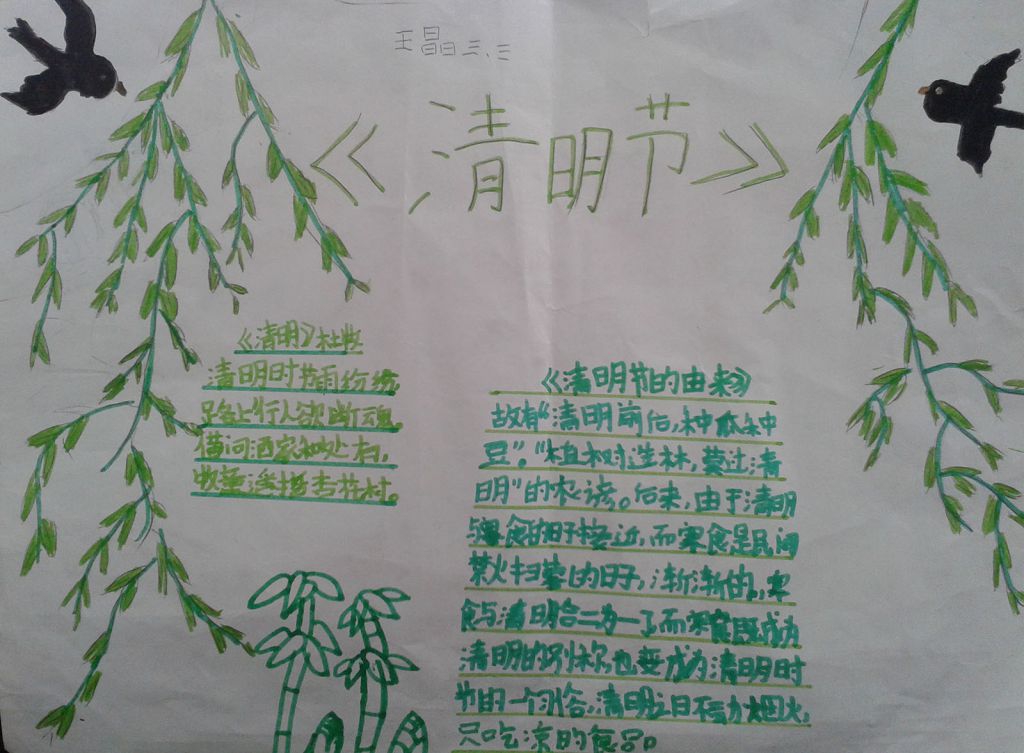 王晶 三、三
《清明节》
《清明》杜牧
清明时节雨纷纷
路上行人欲断魂。
借问酒家何处有,
牧童遥指杏花村。
《清明节的由来》
故有“清明前后,种瓜种
豆”。“植树造林,莫过清
明”的农谚。后来,由于清明
与寒食的日子接近,而寒食是民间
禁火扫墓的日子,渐渐的,寒
食与清明合二为一了而寒食既成为
清明的别称,也变成为清明时
节的一个习俗,清明之日不动烟火,
只吃凉的食品。